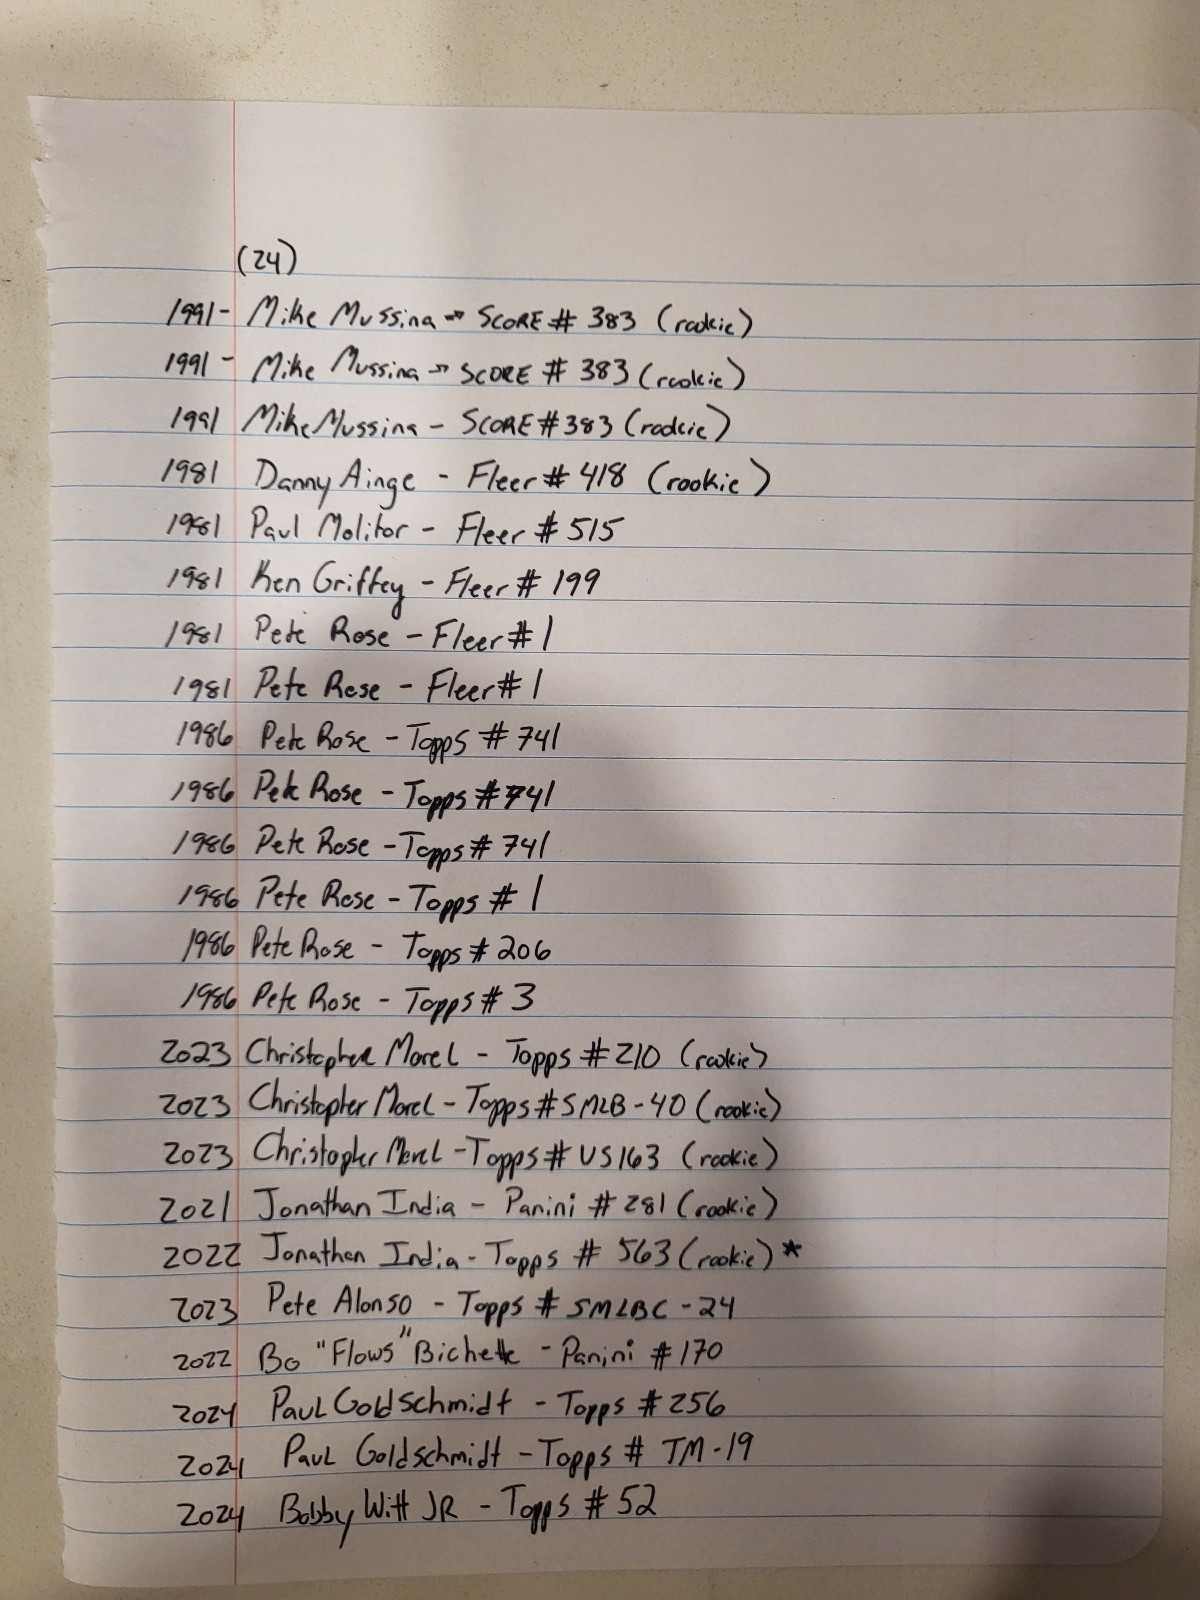 (24)
1991 - Mike Mussina - SCORE # 383 (rookie)
1991 - Mike Mussina - SCORE # 383 (rookie)
1991 Mike Mussina - SCORE # 383 (rookie)
1981 Danny Ainge - Fleer # 418 (rookie)
1981 Paul Molitor - Fleer # 515
1981 Ken Griffey - Fleer # 199
1981 Pete Rose - Fleer # 1
1981 Pete Rose - Fleer # 1
1986 Pete Rose - Topps # 741
1986 Pete Rose - Topps # 741
1986 Pete Rose - Topps # 741
1986 Pete Rose - Topps # 1
1986 Pete Rose - Topps # 206
1986 Pete Rose - Topps # 3
2023 Christopher Morel - Topps # 210 (rookie)
2023 Christopher Morel - Topps # SMLB-40 (rookie)
2023 Christopher Morel - Topps # US163 (rookie)
2021 Jonathan India - Panini # 281 (rookie)
2022 Jonathan India - Topps # 563 (rookie) *
2023 Pete Alonso - Topps # SMLBC-24
2022 Bo "Flows" Bichette - Panini # 170
2024 Paul Goldschmidt - Topps # 256
2024 Paul Goldschmidt - Topps # TM-19
2024 Bobby Witt JR - Topps # 52